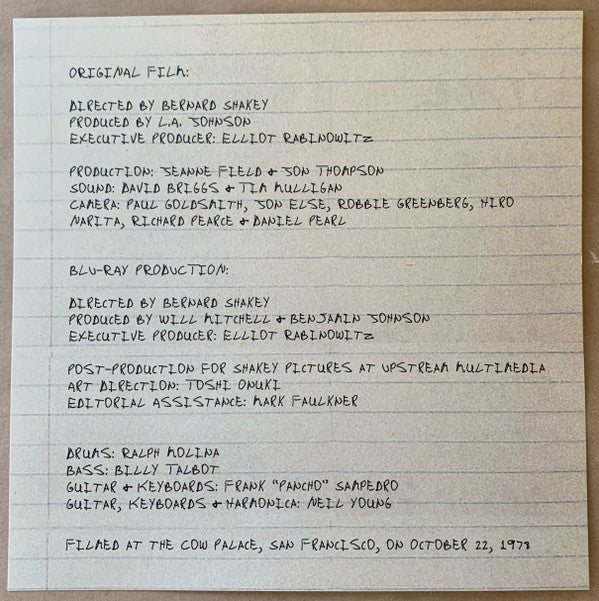 ORIGINAL FILM:
DIRECTED BY BERNARD SHAKEY
PRODUCED BY L.A. JOHNSON
EXECUTIVE PRODUCER: ELLIOT RABINOWITZ
PRODUCTION: JEANNE FIELD & JON THOMPSON
SOUND: DAVID BRIGGS & TIM MULLIGAN
CAMERA: PAUL GOLDSMITH, JON ELSE, ROBBIE GREENBERG, HIRO
NARITA, RICHARD PEARCE & DANIEL PEARL
BLU-RAY PRODUCTION:
DIRECTED BY BERNARD SHAKEY
PRODUCED BY WILL MITCHELL & BENJAMIN JOHNSON
EXECUTIVE PRODUCER: ELLIOT RABINOWITZ
POST-PRODUCTION FOR SHAKEY PICTURES AT UPSTREAM MULTIMEDIA
ART DIRECTION: TOSHI ONUKI
EDITORIAL ASSISTANCE: MARK FAULKNER
DRUMS: RALPH MOLINA
BASS: BILLY TALBOT
GUITAR & KEYBOARDS: FRANK "PANCHO" SAMPEDRO
GUITAR, KEYBOARDS & HARMONICA: NEIL YOUNG
FILMED AT THE COW PALACE, SAN FRANCISCO, ON OCTOBER 22, 1978